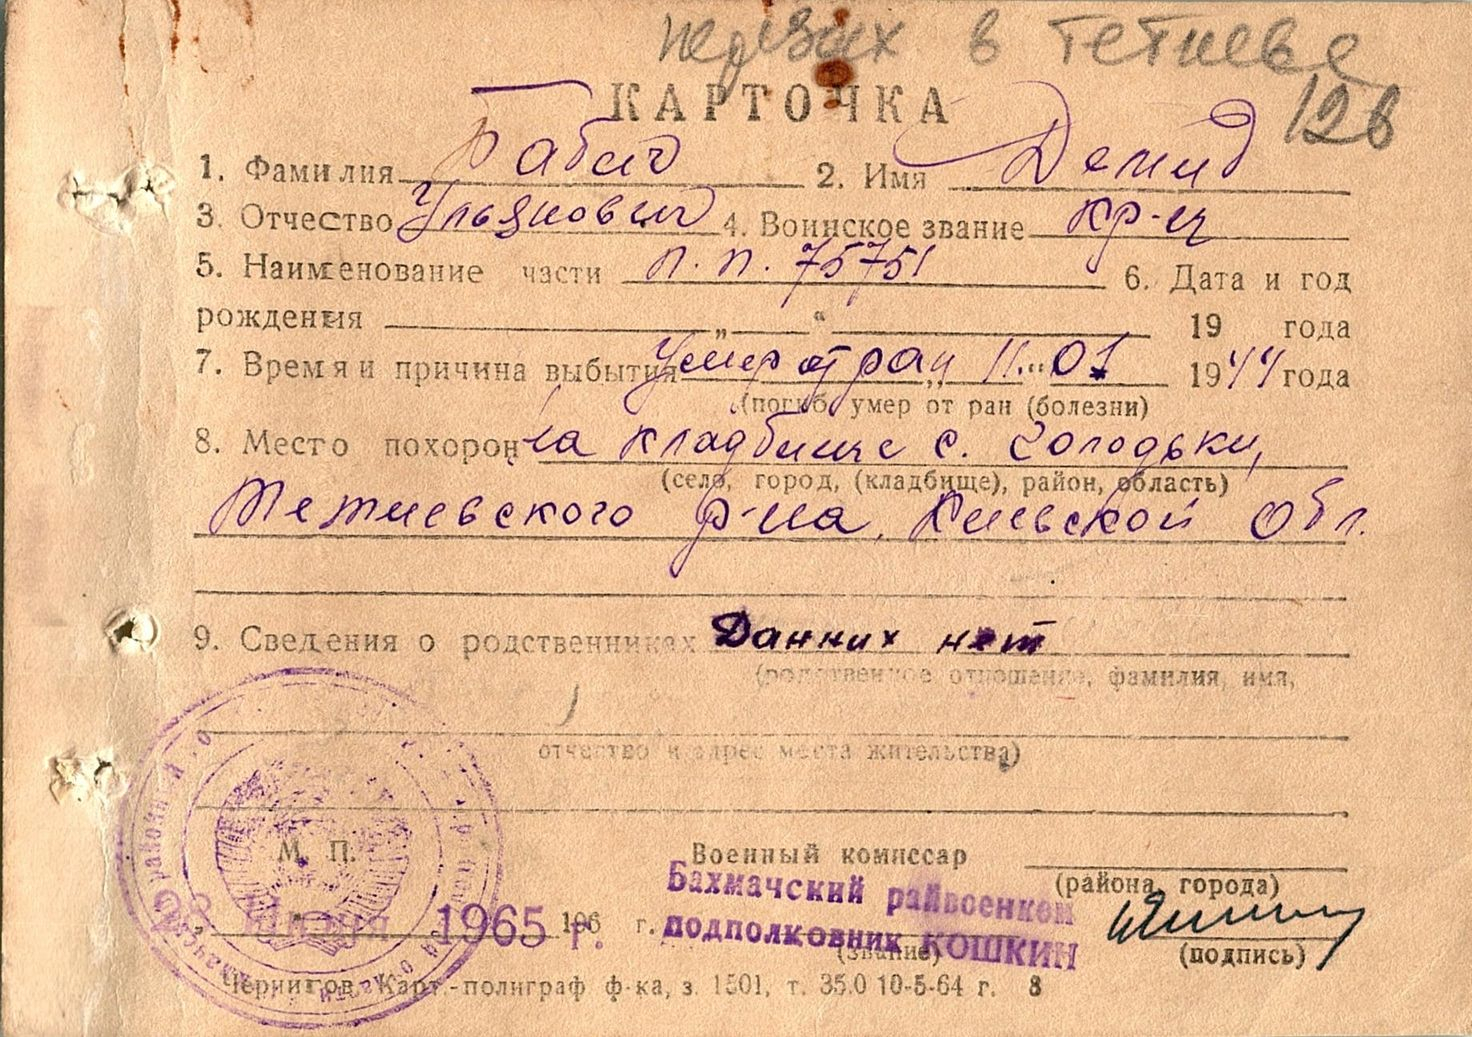 перезах в Тетиеве
126
КАРТОЧКА
1. Фамилия Бабич 2. Имя Демид
3. Отчество Ульянович 4. Воинское звание кр-ц
5. Наименование части п.п. 75751 6. Дата и год
рождения „ “ 19 года
7. Время и причина выбытия Умер от ран 11 „ 01 1944 года
(погиб, умер от ран (болезни)
8. Место похорон на кладбище с. Голодьки,
(село, город, (кладбище), район, область)
Тетиевского р-на, Киевской обл.
9. Сведения о родственниках Данних нет
(родственное отношение, фамилия, имя,
отчество и адрес места жительства)
М. П. Военный комиссар
(района, города)
Бахмачский райвоенком
1965 г. 196 г. подполковник КОШКИН
(звание) (подпись)
Чернигов, Карт.-полиграф ф-ка, з. 1501, т. 35.0 10-5-64 г. 8